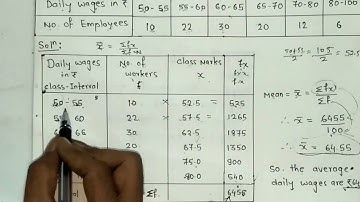 Daily wages in ₹ 50-55 55-60 60-65 65-70 70-80 80-100
No. of Employees 10 22 30 20 12 6
Sol: x̄ = Σfx
Daily wages No. of Class Marks fx
in ₹ workers x
class-Interval f
50-55 10 × 52.5 = 525
60 22 × 57.5 = 1265
65 30 62.5 1875
20 67.5 1350
75.0 900
90.0 540
Σf 6455
= 105/2 = 52.5
Mean = x̄ = Σfx/Σf
∴ x̄ = 6455/100
∴ x̄ = 64.55
So, the average
daily wages are